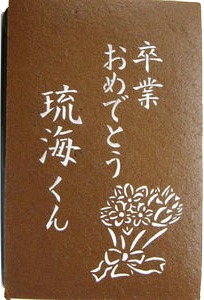 卒業
おめでとう
琉海くん